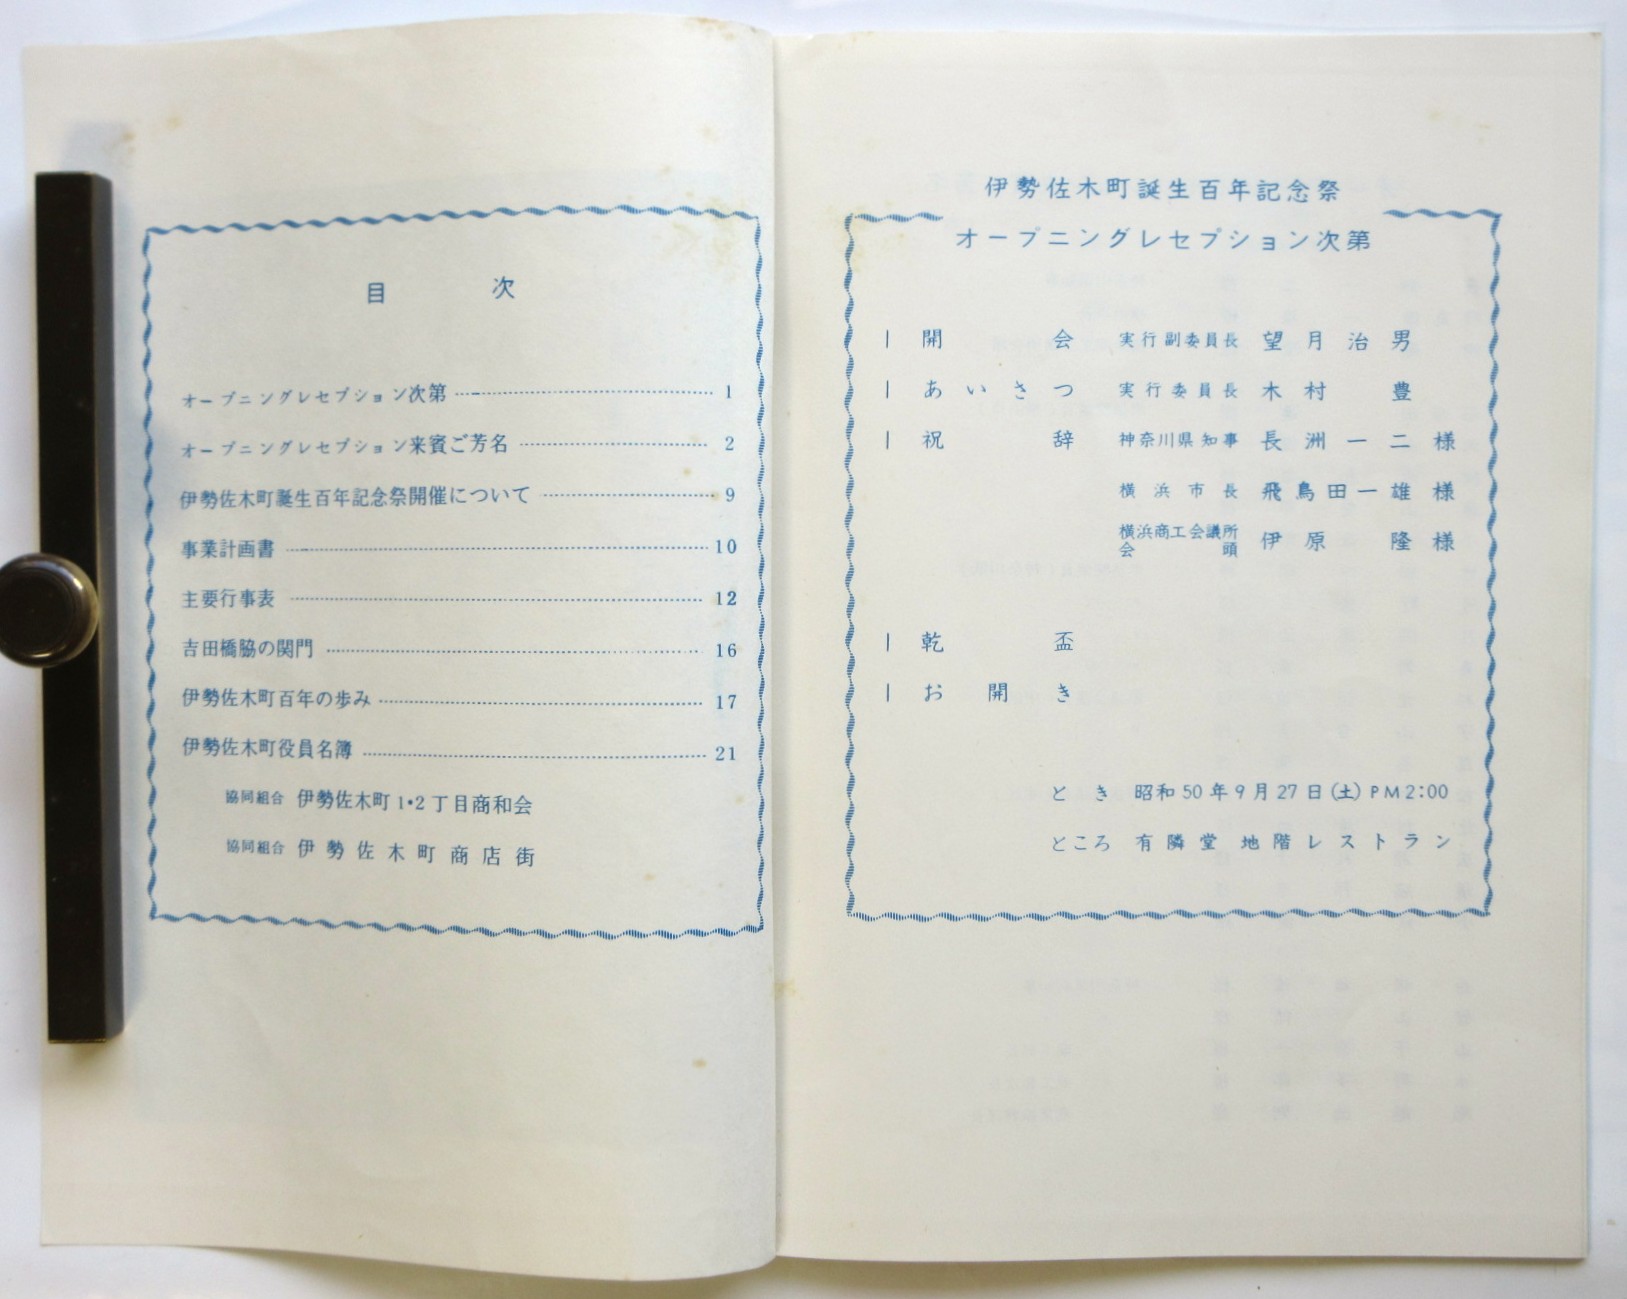 目次
オープニングレセプション次第 1
オープニングレセプション来賓ご芳名 2
伊勢佐木町誕生百年記念祭開催について 9
事業計画書 10
主要行事表 12
吉田橋脇の関門 16
伊勢佐木町百年の歩み 17
伊勢佐木町役員名簿 21
協同組合 伊勢佐木町1・2丁目商和会
協同組合 伊勢佐木町商店街
伊勢佐木町誕生百年記念祭
オープニングレセプション次第
| 開会 実行副委員長 望月治男
| あいさつ 実行委員長 木村豊
| 祝辞 神奈川県知事 長洲一二様
横浜市長 飛鳥田一雄様
横浜商工会議所会頭 伊原隆様
| 乾盃
| お開き
とき 昭和50年9月27日(土)PM2:00
ところ 有隣堂 地階レストラン